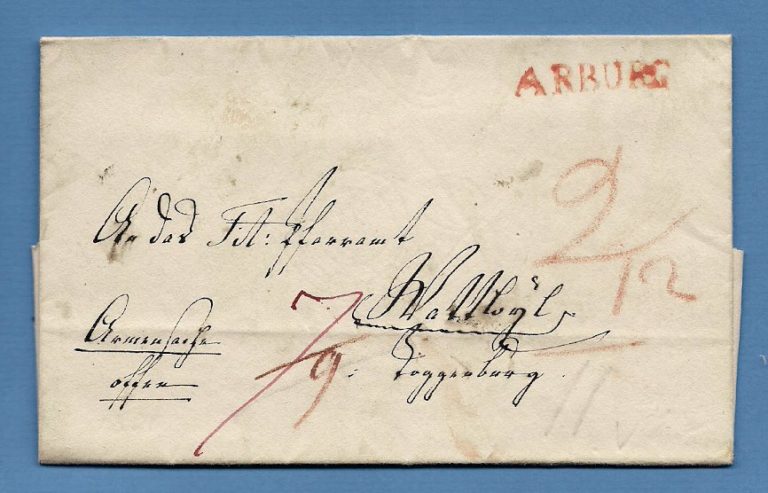 ARBURG
An das Tit: Pfarramt
Wattwyl
Toggenburg
Armensache
offen
7/9
2/12